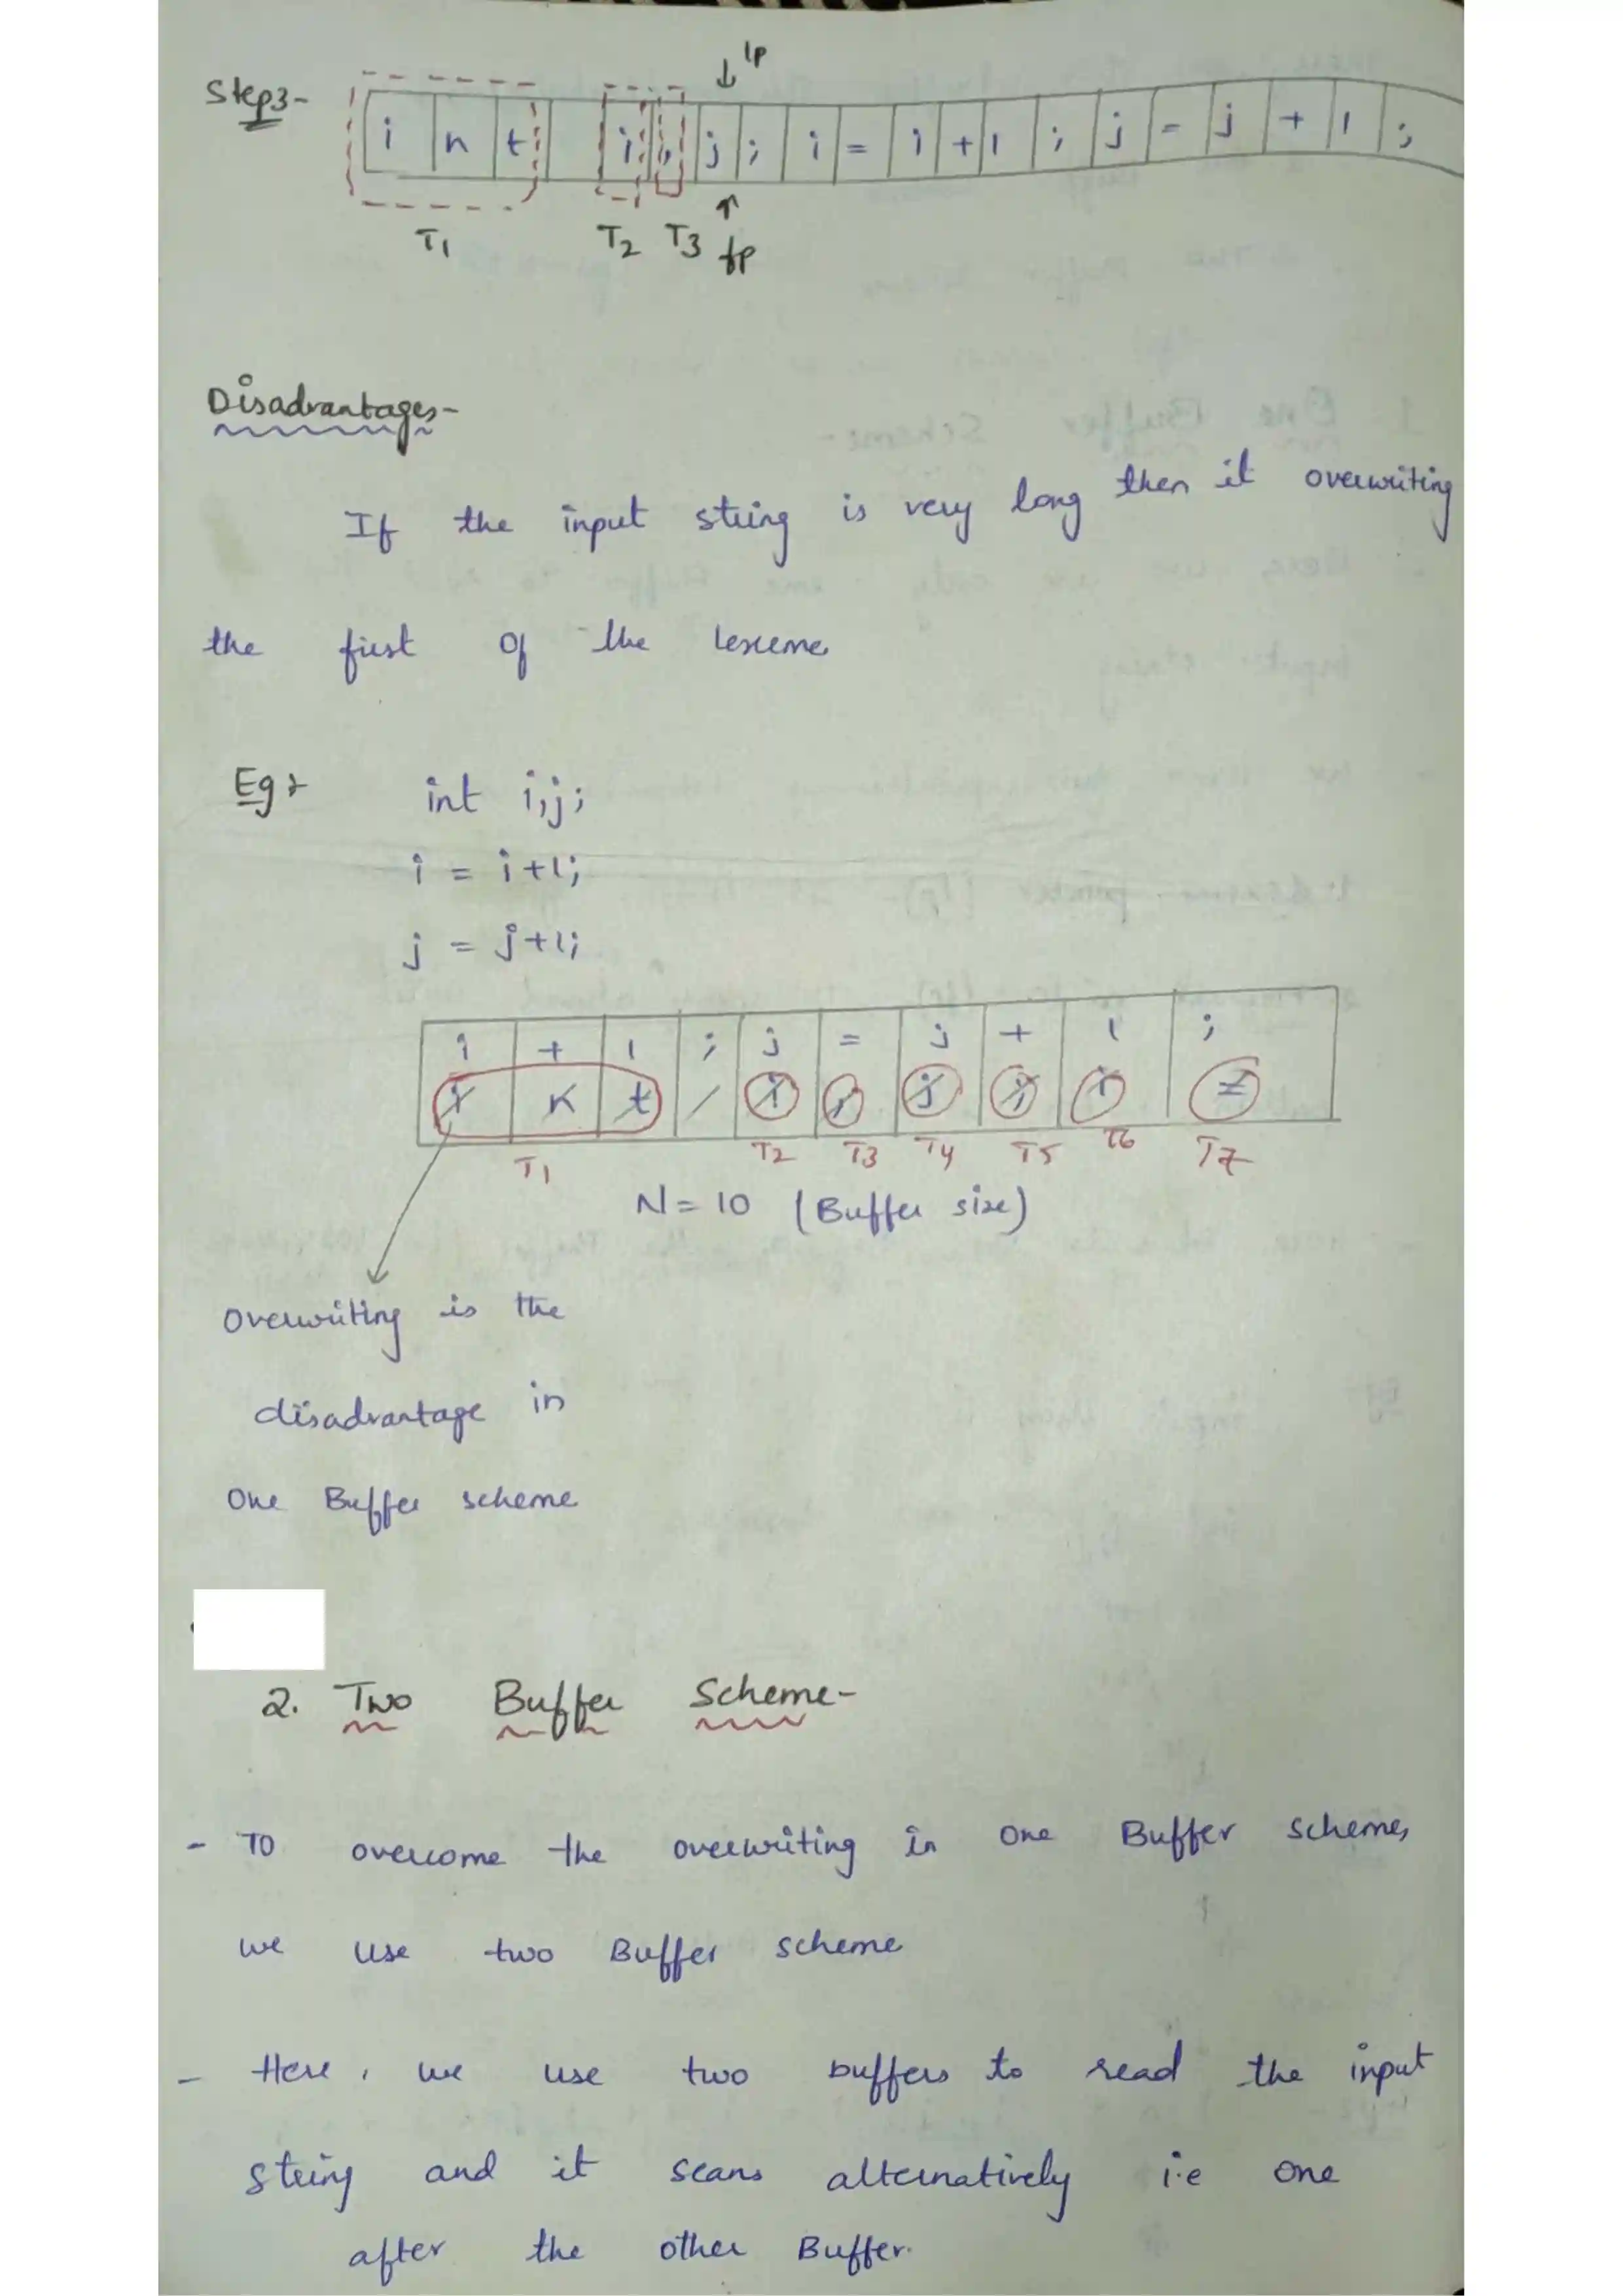 Step3-
lp
i n t i , j ; i = i + 1 ; j = j + 1 ;
T1 T2 T3 fp
Disadvantages-
If the input string is very long then it overwriting
the first of the lexeme
Eg: int i,j;
i = i+1;
j = j+1;
i + 1 ; j = j + 1 ;
i n t i , j ; i =
T1 T2 T3 T4 T5 T6 T7
N = 10 (Buffer size)
Overwriting is the
disadvantage in
One Buffer scheme
2. Two Buffer Scheme-
- To overcome the overwriting in one Buffer scheme,
we use two Buffer scheme
- Here, we use two buffers to read the input
string and it scans alternatively i.e one
after the other Buffer.